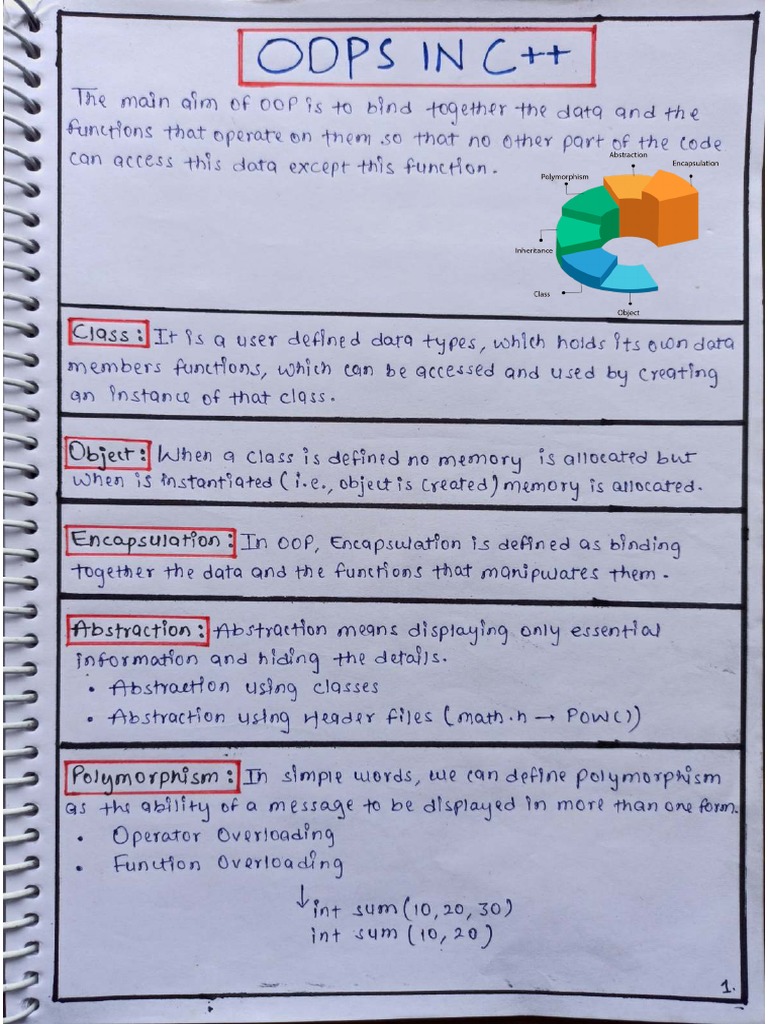 OOPS IN C++
The main aim of OOP is to bind together the data and the
functions that operate on them so that no other part of the code
can access this data except this function.
Abstraction
Encapsulation
Polymorphism
Inheritance
Class
Object
Class: It is a user defined data types, which holds its own data
members functions, which can be accessed and used by creating
an instance of that class.
Object: When a class is defined no memory is allocated but
when is instantiated (i.e., object is created) memory is allocated.
Encapsulation: In OOP, Encapsulation is defined as binding
together the data and the functions that manipulates them.
Abstraction: Abstraction means displaying only essential
information and hiding the details.
• Abstraction using classes
• Abstraction using Header files (math.h → POW())
Polymorphism: In simple words, we can define polymorphism
as the ability of a message to be displayed in more than one form.
• Operator Overloading
• Function Overloading
↓ int sum(10,20,30)
int sum (10,20)
1.